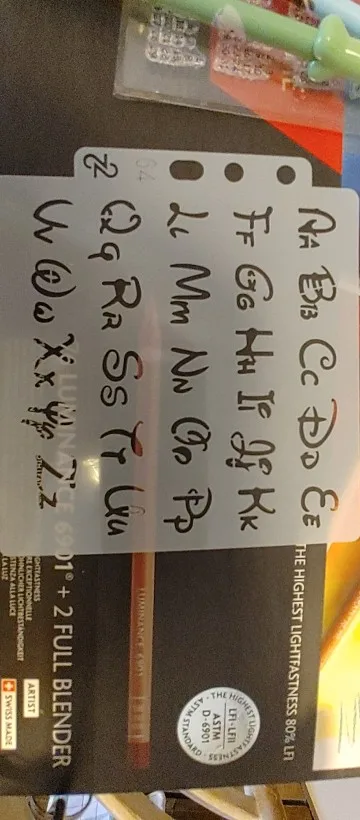 Aa Bb Cc Dd Ee
Ff Gg Hh Ii Jj Kk
Ll Mm Nn Oo Pp
Qq Rr Ss Tt Uu
Vv Ww Xx Yy Zz
64
THE HIGHEST LIGHTFASTNESS 80% LFI
THE HIGHEST LIGHTFASTNESS
LFI-LFII
ASTM
D-6901
ASTM STANDARD
LUMINANCE 6901
LUMINANCE 6901® + 2 FULL BLENDER
ARTIST
SWISS MADE